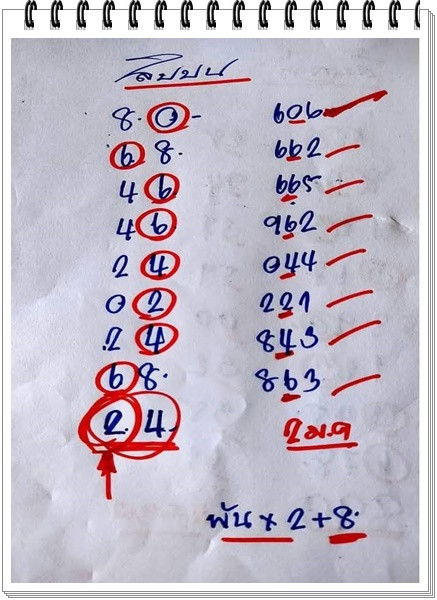 สิบบน
8. 0 - 606
6 8. 662
4 6 665
4 6 962
2 4 044
0 2 221
2 4 843
6 8. 863
2. 4. 2 ม.ค
พัน x 2 + 8.